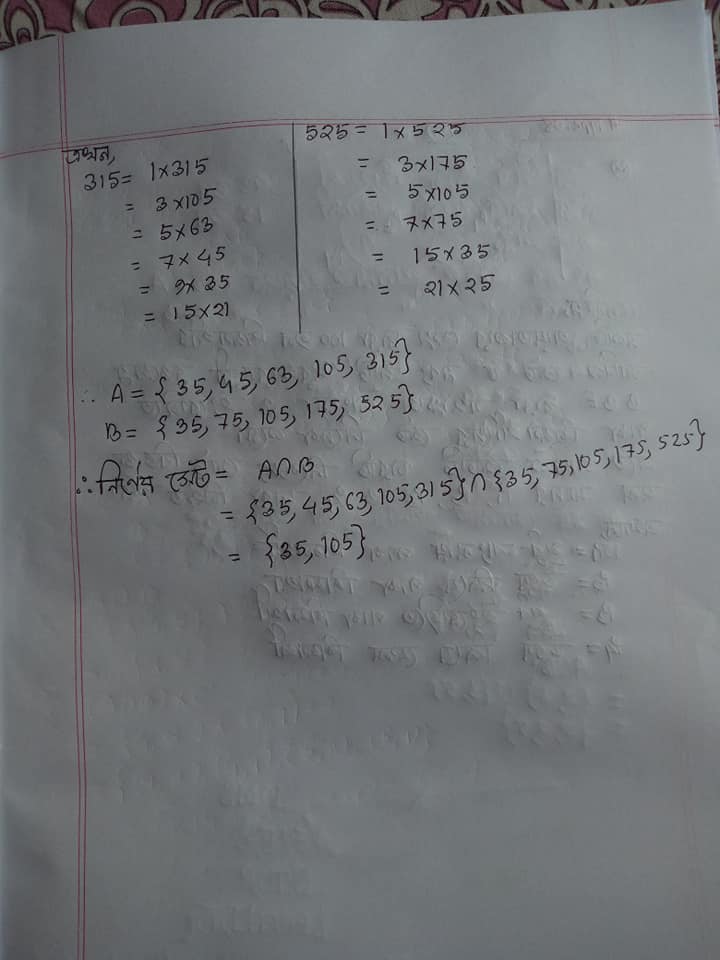 এখন,
315 = 1×315
= 3×105
= 5×63
= 7×45
= 9×35
= 15×21
525 = 1×525
= 3×175
= 5×105
= 7×75
= 15×35
= 21×25
∴ A = {35, 45, 63, 105, 315}
B = {35, 75, 105, 175, 525}
∴ নির্ণেয় সেট = A∩B
= {35, 45, 63, 105, 315} ∩ {35, 75, 105, 175, 525}
= {35, 105}